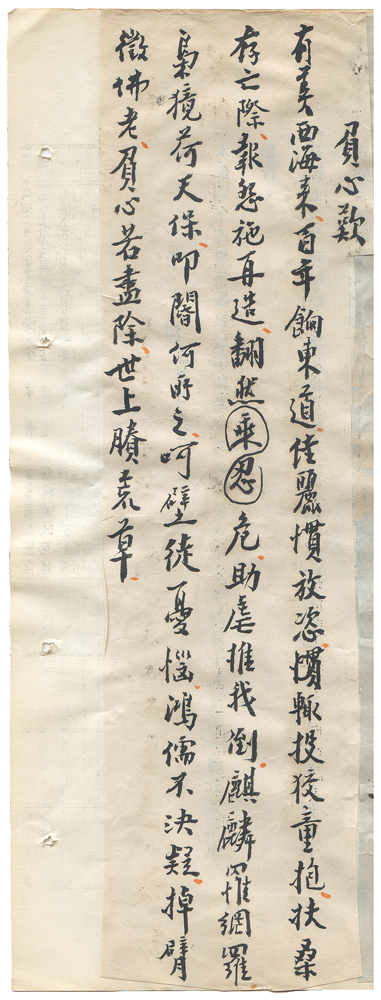 負心歎
有美西海来百年餉東道佳麗慣放恣慣輒投狡童抱扶桑
存亡際報怨施再造翻然乘忍危助虐推我倒麒麟罹網羅
梟獍荷天保叩閽何所之呵壁徒憂惱鴻儒不決疑掉臂
徵佛老負心若盡除世上賸荒草